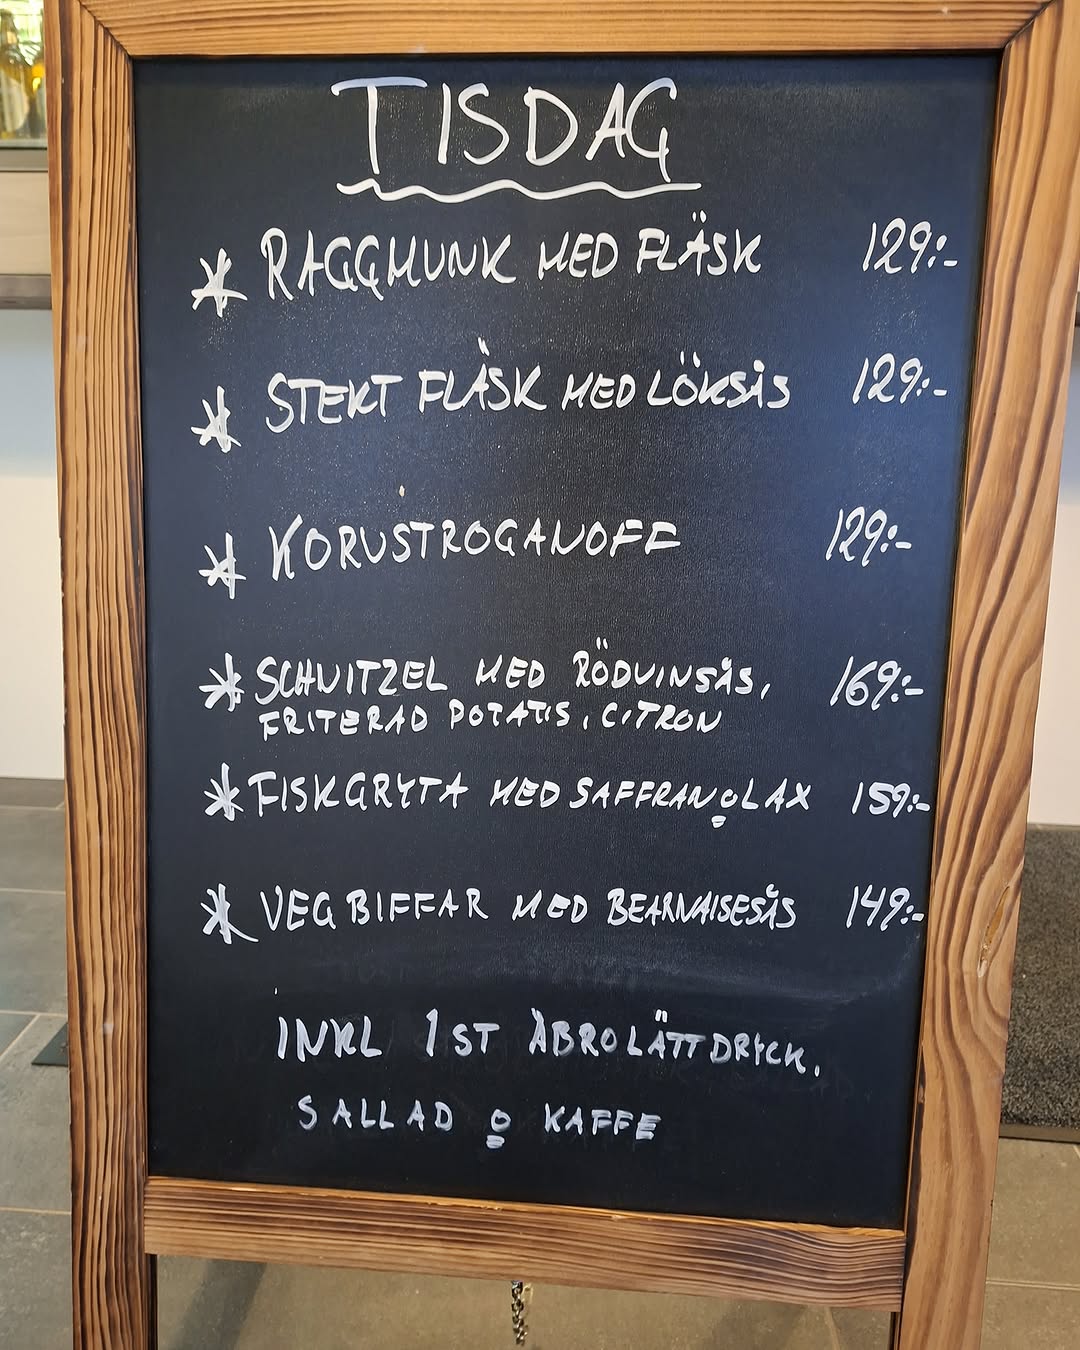 TISDAG
* RAGGMUNK MED FLÄSK 129:-
* STEKT FLÄSK MED LÖKSÅS 129:-
* KORVSTROGANOFF 129:-
* SCHNITZEL MED RÖDVINSÅS, 169:-
FRITERAD POTATIS, CITRON
* FISKGRYTA MED SAFFRAN o LAX 159:-
* VEGBIFFAR MED BEARNAISESÅS 149:-
INKL 1ST ÅBRO LÄTTDRYCK,
SALLAD o KAFFE